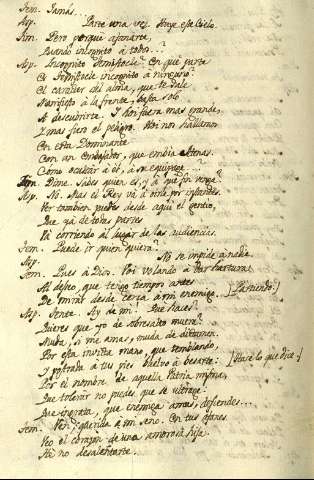 Tem. Jamás...
Asp. Parte una vez. Huye este Cielo.
Tem. Pero porqué afanarte,
Quando incognito á todos...?
Asp. Incognito Temistocle? En qué parte
Es Temistocle incognito á ninguno?
El caracter del alma, que te sale
Manifiesto á la frente, basta solo
A descubrirte. Y hoi fuera mas grande,
Y mas fiero el peligro. Hoi nos hallamos
Con esta Dominante
Con un Embajador, que embia Atenas.
Cómo ocultar á él, á su
Tem. Dime. Sabes quien es, y á qué fin venga?
Asp. No. Mas el Rey vá á oirle por instantes.
Ver tambien puedes desde aquí el gentío,
Que yá de todas partes
Vá corriendo al lugar de las audiencias.
Tem. Puede ir quien quiera?
Asp. No se impide á nadie.
Tem. Pues á Dios. Voi volando á dar hartura
Al deseo, que tengo tiempo antes
De mirar desde cerca á mi enemigo... [Partiendo.]
Asp. Tente. Ay de mi! Que haces?
Quieres que yo de sobresalto muera?
Muda, si me amas, muda de dictamen.
Por esta invicta mano, que temblando,
Y postrada á tus pies vuelvo á besarte: [Hace lo que dice.]
Por el nombre de aquella Patria misma,
Que tolerar no puedes que se ultrage:
Que ingrata, que enemiga amas, defiendes...
Tem. Ven, querida á mi seno. En tus afanes
Veo el corazon de una amorosa hija.
No desalentarte.